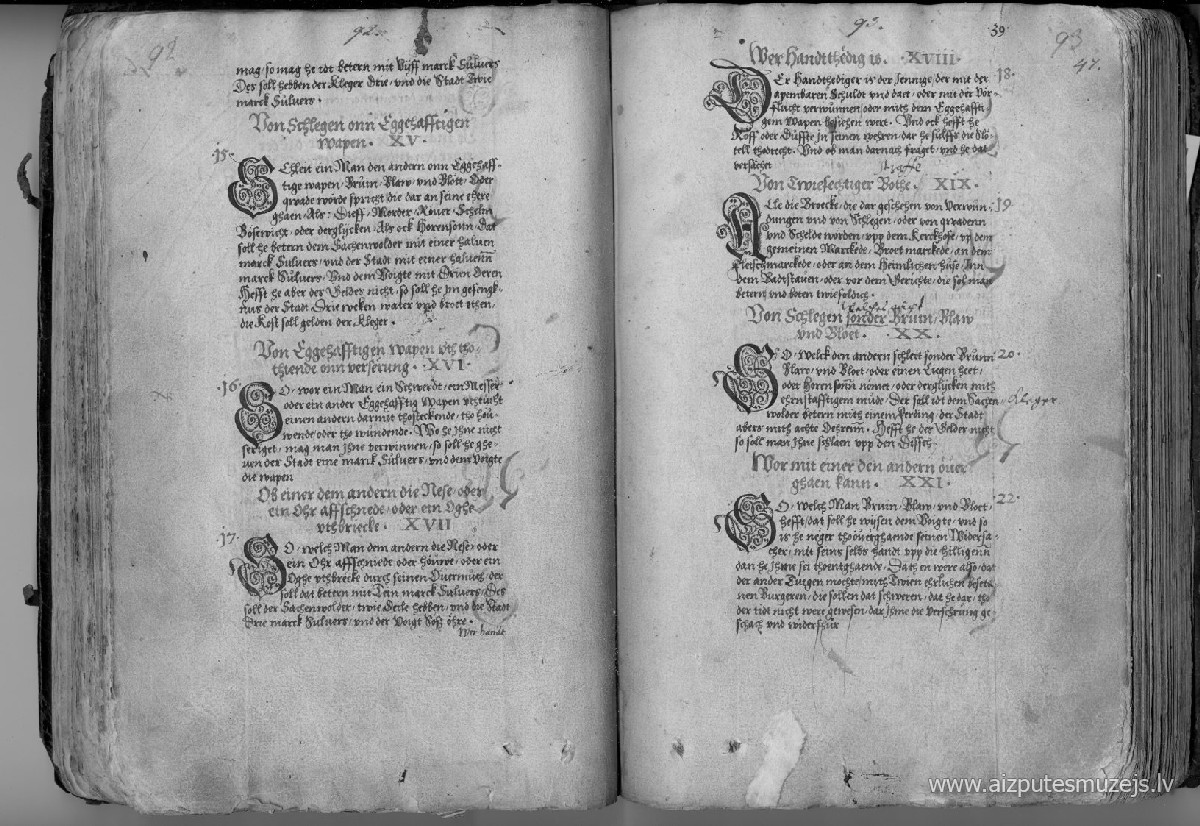 92
92
mag, so mag he idt betern mit Vyff marck Sülvers
Der soll hebben der Kleger Drie, vnd die Stadt Drie
marck Sülvers.
Von Schlegen onn Eggehafftigen
wapen. XV.
15.
Schleit ein Man den andern onn Eggehaff-
tige wapen, Bruin, Blaw, vnd Bloet, Oder
qwade worde spricht die dar an seine ehere
ghaen, Als: Dieff, Morder, Röuer, Schelm
Bösewicht, oder derglÿcken, Als ock Horensonn, Dat
soll he betern dem Sachenwolder mit einer haluen
marck Sülvers, vnd der Stadt mit einer haluenn
marck Sülvers, Vnd dem Voigte mit Drien Oeren
Hefft he aber der Gelder nicht, so soll he jm gefengk-
nüs der Stadt, Drie wecken water vnd broet ethen,
die Kost soll gelden der Kleger.
Von Eggehafftigen wapen vth tho
thiende onn verserung. XVI.
16.
So, wor ein Man ein Schwerdt, ein Messer
oder ein ander Eggehafftig Wapen vthtücht
einen andern darmit thostekende, tho hou-
wende oder tho wundende. Wo he Jhne nicht
seriget, mag man jhne verwinnen, so soll he ghe-
uen der Stadt eine marck Sülvers, vnd dem Voigte
die wapen
Ob einer dem andern die Nese, oder
ein Ohr affschnede, oder ein Oghe
vthbriecke. XVII
17.
So, welch Man dem andern die Nese, oder
ein Ohr affschniedt oder houwet, oder ein
Oghe vthbreckt durch seinen Ouermuth, der
soll dat betern mit Tein marck Sülvers, Des
soll der Sachenwolder, twie Deele hebben, vnd die Stadt
Drie marck Sülvers, vnd der Voigt Söß öhre.
Wer handt
93.
39
93
47.
Wer Handtthedig is. XVIII.
18.
Der Handthediger is der Jennige, der mit der
apenbaren Schuldt vnd daet, oder mit der Vor-
flucht verwunnen, oder mith dem Eggehaffti
gem Wapen besehen wert. Vnd ock hefft he
Roff oder Düffte in seinen wehren, dar he sülffs die slö
tell thodrecht. Vnd ob man darnach fraget, vnd he dat
versachet
Von Twiefechtiger Bothe. XIX.
19
Alle die Broecke, die dar geschehen von Verwun-
dungen vnd von Schlegen, oder von qwadenn
vnd Schelde worden, vpp dem Kerckhoffe, vp dem
gemeinen Marckede, Broet marckede, an dem
Fleischmarckede, oder an dem Heimlichen hüse, Inn
dem Badtstauen, oder vor dem Gerichte, die soll man
betern vnd böten twiefoldich.
Von Schlegen sonder Bruin, Blaw
vnd Bloet. XX.
20.
So, welck den andern schleit sonder Bruin
Blaw, vnd Bloet, oder einen Lögen heet,
oder Horensonn nömet, oder derglÿcken mith
ehrnstafftigem müde, Der soll idt dem Sachen-
Kleger
wolder betern mith einem Ferding, der Stadt
abers mith achte Oehrenn. Hefft he der Gelder nicht
so soll man Jhne schlaen vpp den
Wor mit einer den andern öuer
ghaen kann. XXI.
22.
So, welch Man Bruin, Blaw, vnd Bloet
hefft, dat soll he wÿsen dem Voigte, vnd so
is he neger thoöuerghaende seinen Widersa-
cher, mit seins selbs handt vpp die hilligenn
dan he Jhme sei thoentghaende. Dath en were also, dat
der ander Tügen mochte mith Twien ehrlichen besete-
nen Burgeren, die sollen dat schweren, dat he dar, tho
der tidt nicht were gewesen, dar jhme die Versehrung ge-
schach vnd widerfhür
www.aizputesmuzejs.lv